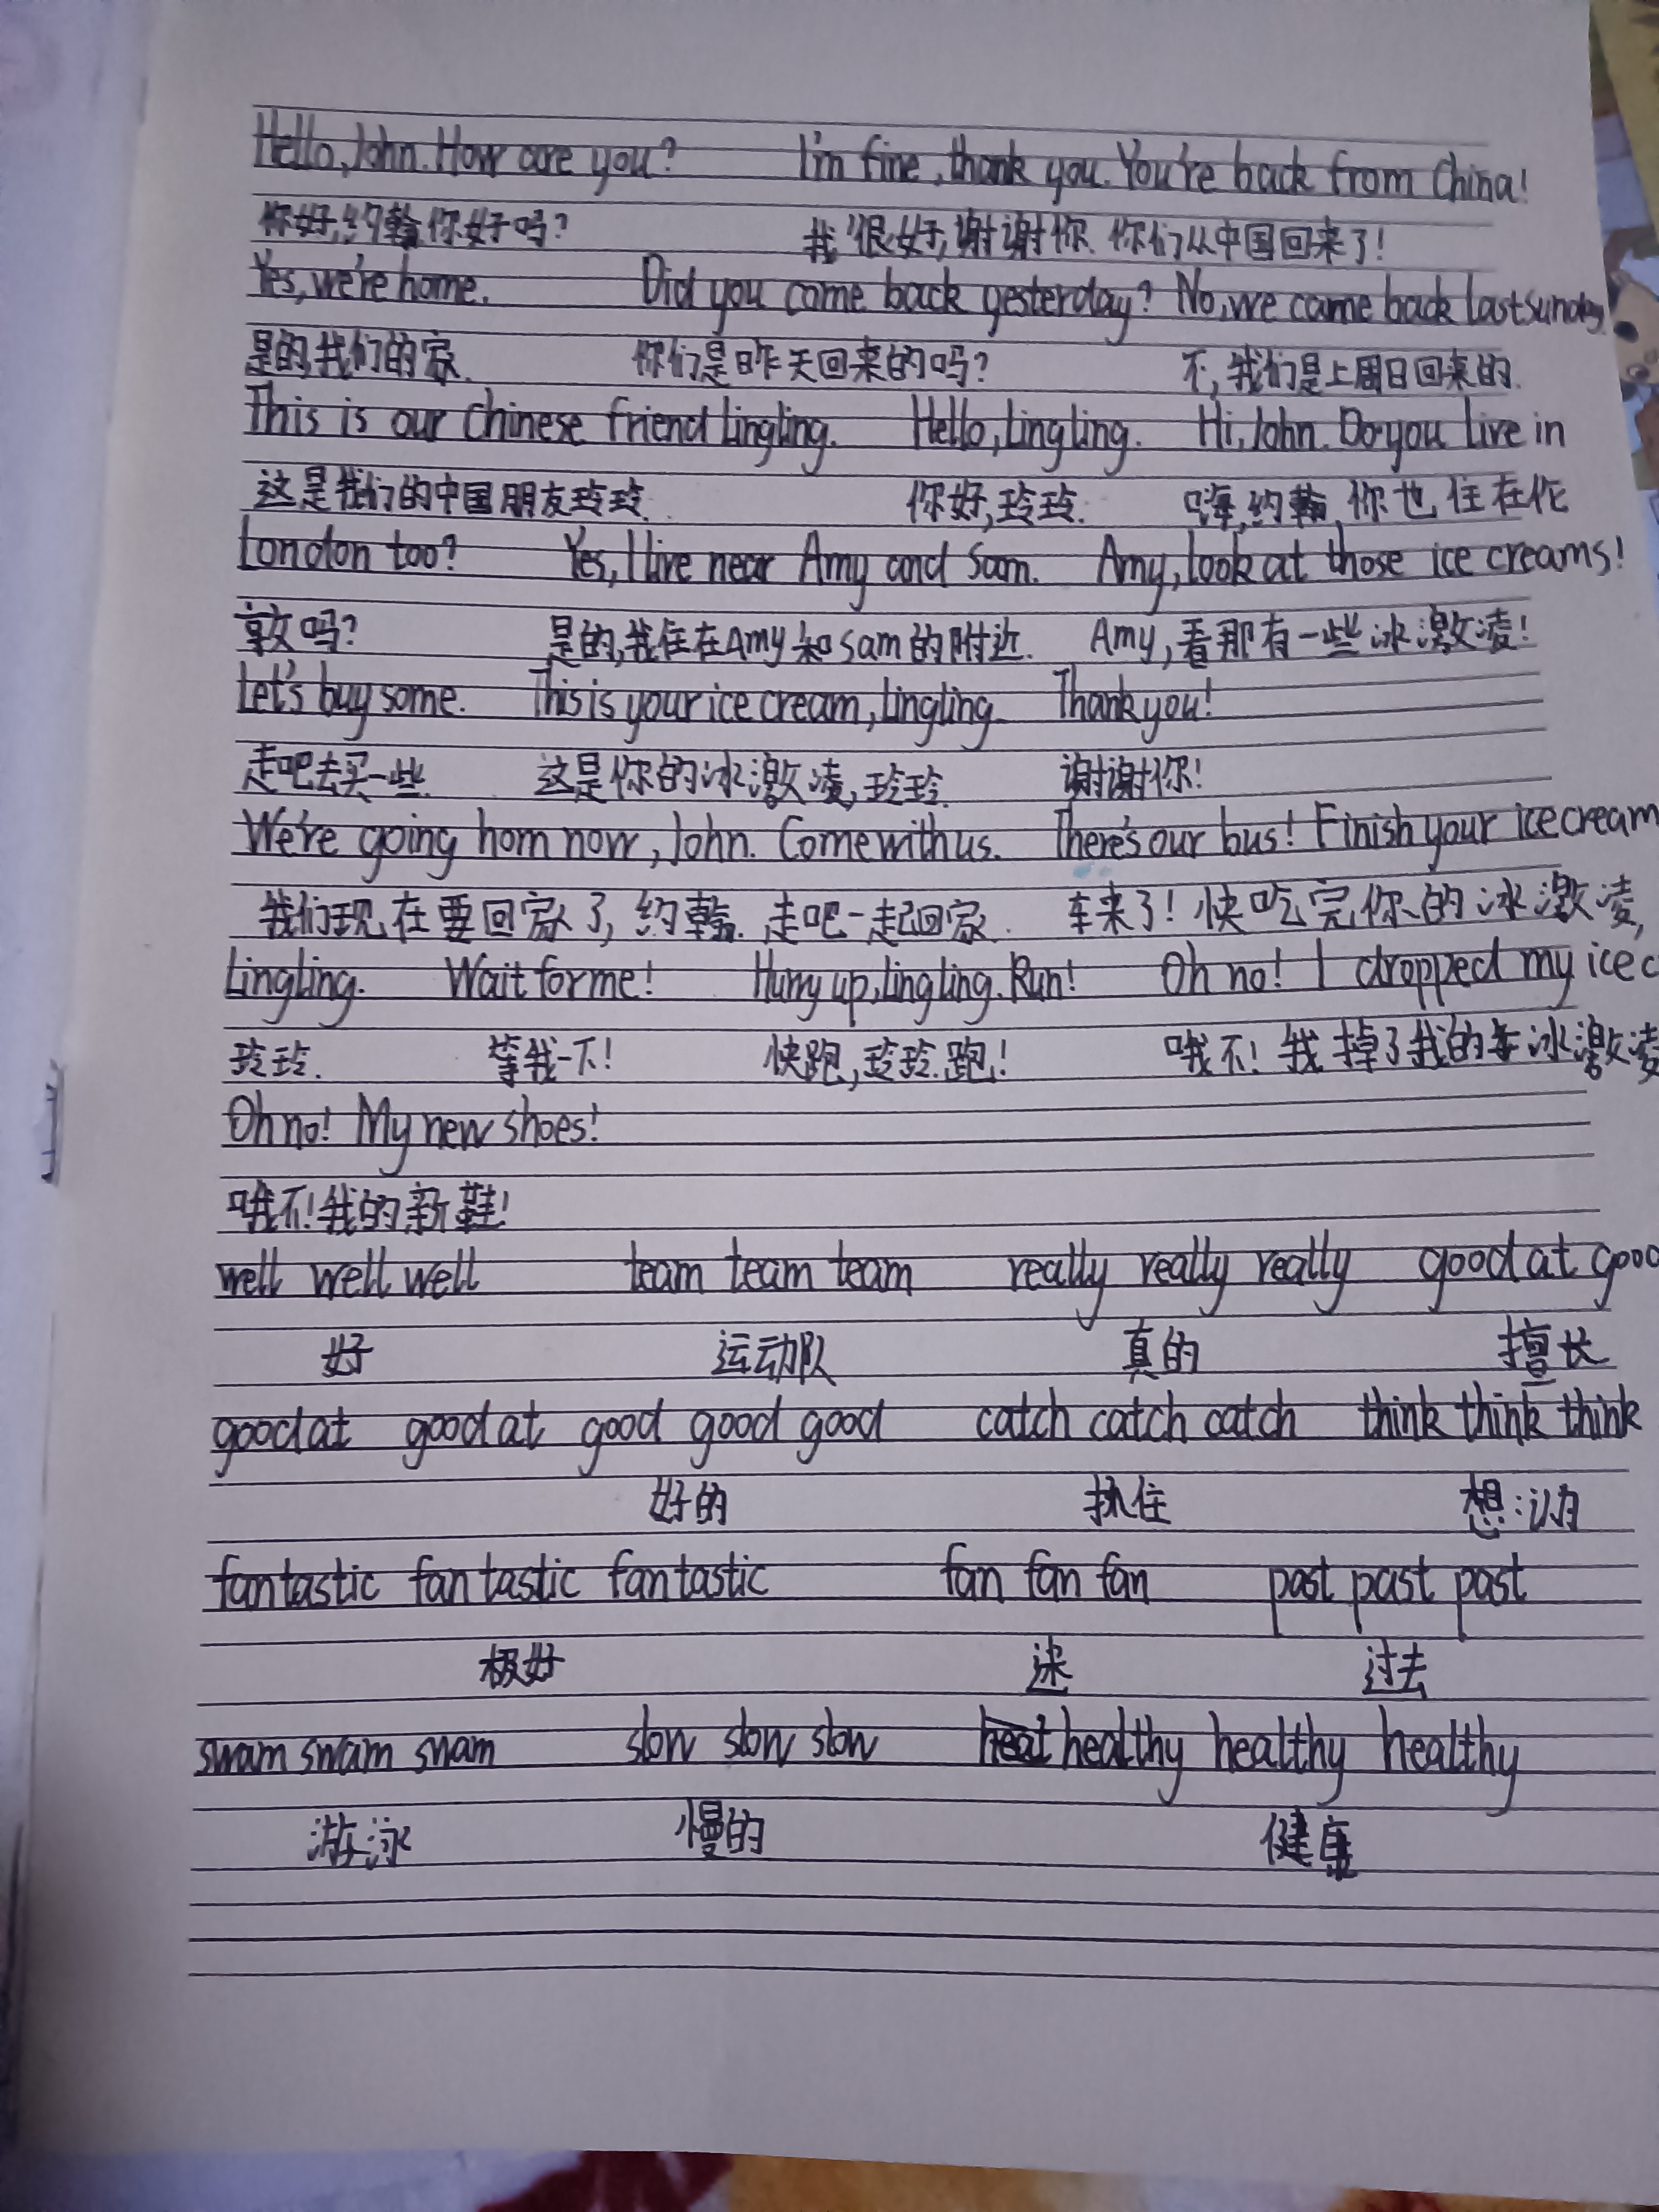 Hello, John. How are you? I'm fine, thank you. You're back from China!
你好,约翰你好吗? 我很好,谢谢你. 你们从中国回来了!
Yes, we're home. Did you come back yesterday? No, we came back last sunday
是的,我们的家. 你们是昨天回来的吗? 不,我们是上周日回来的.
This is our Chinese friend Lingling. Hello, Lingling. Hi, John. Do you live in
这是我们的中国朋友玲玲. 你好,玲玲. 嗨,约翰,你也住在伦
London too? Yes, I live near Amy and Sam. Amy, look at those ice creams!
敦吗? 是的,我住在Amy和Sam的附近. Amy,看那有一些冰激凌!
Let's buy some. This is your ice cream, Lingling. Thank you!
走吧去买一些. 这是你的冰激凌,玲玲. 谢谢你!
We're going hom now, John. Come with us. There's our bus! Finish your ice cream
我们现在要回家了,约翰. 走吧一起回家. 车来了!快吃完你的冰激凌,
Lingling. Wait for me! Hurry up, Lingling. Run! Oh no! I dropped my ice c
玲玲. 等我一下! 快跑,玲玲.跑! 哦不!我掉了我的冰激凌
Oh no! My new shoes!
哦不!我的新鞋!
well well well team team team really really really good at good
好 运动队 真的 擅长
good at good at good good good catch catch catch think think think
好的 抓住 想:认为
fantastic fantastic fantastic fan fan fan past past past
极好 迷 过去
swam swam swam slow slow slow healthy healthy healthy
游泳 慢的 健康